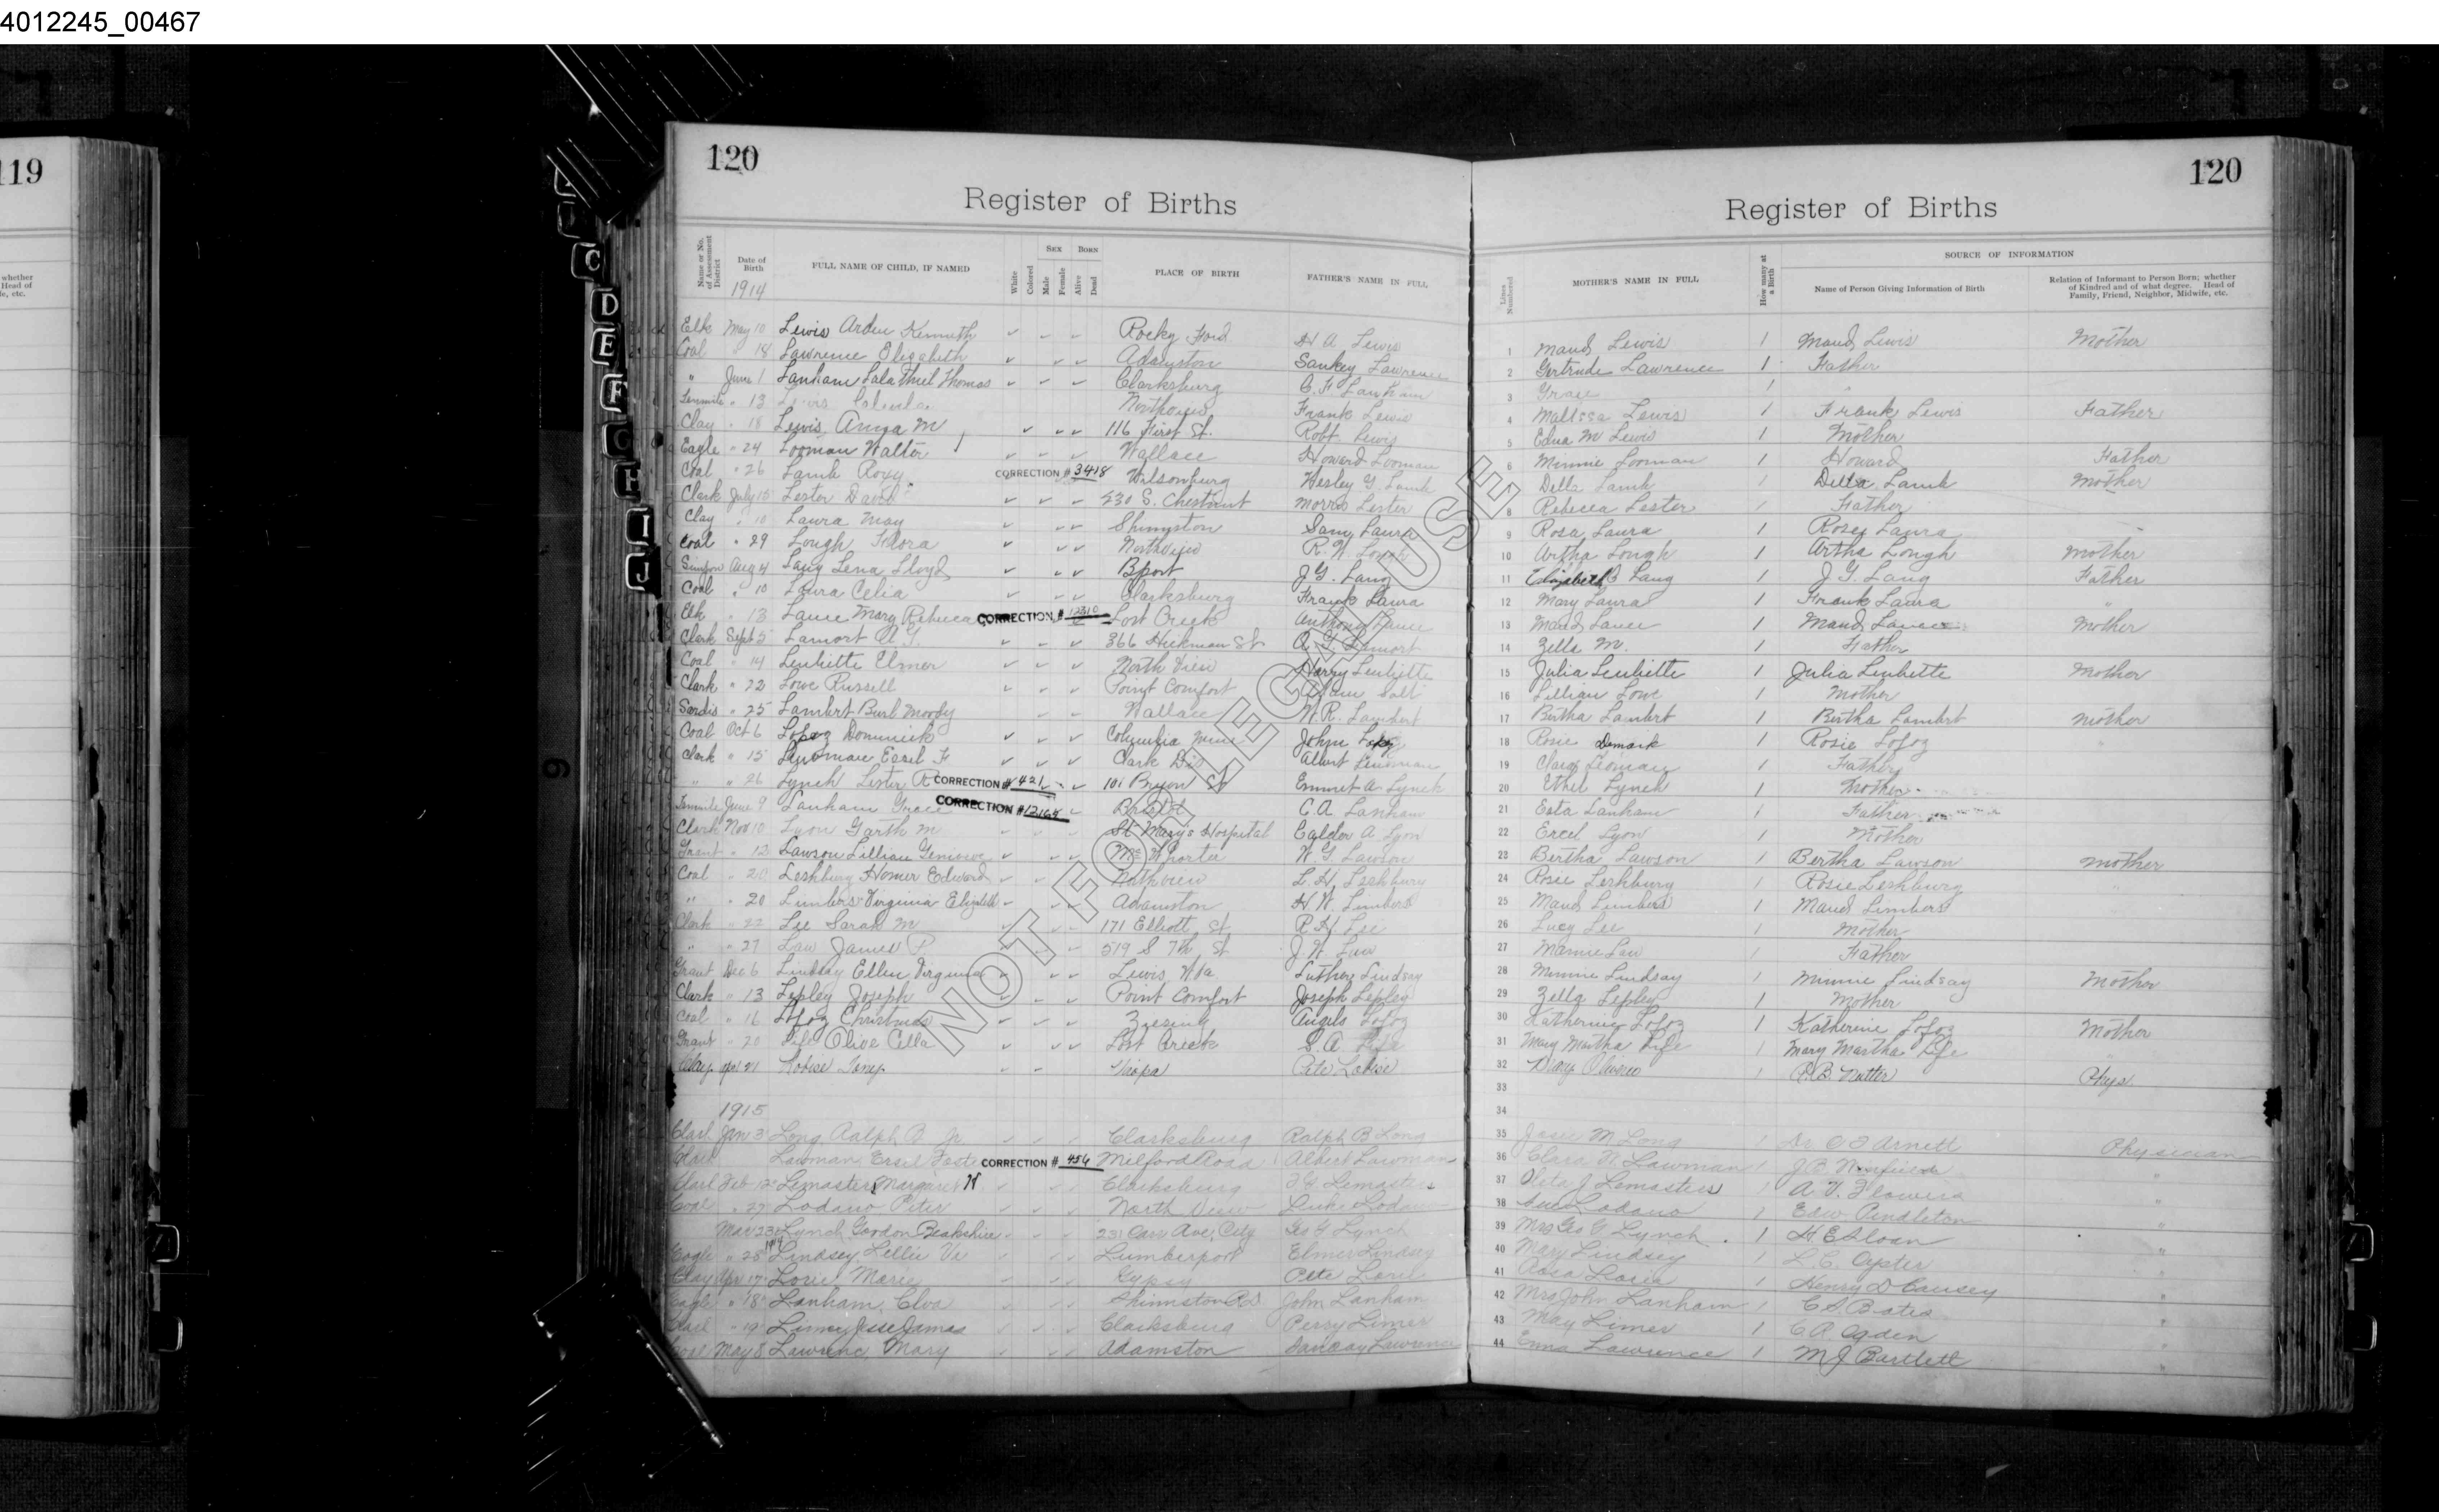 4012245_00467
119
whether
Head of
le, etc.
120
Register of Births
Name or No. of Assessment District
Date of Birth
1914
FULL NAME OF CHILD, IF NAMED
White
Colored
SEX
Male
Female
BORN
Alive
Dead
PLACE OF BIRTH
FATHER'S NAME IN FULL
Elk May 10 Lewis Arden Kenneth Rocky Ford H A Lewis
Coal " 18 Lawrence Elizabeth Adamston Sankey Lawrence
" June 1 Lanham Salathiel Thomas Clarksburg C. F. Lanham
Tenmile " 13 Lewis Northview Frank Lewis
Clay " 18 Lewis M 116 First St. Robt Lewis
Eagle " 24 Looman Walter Wallace Howard Looman
Coal " 26 Lamb Roxy CORRECTION # 3418 Wilsonburg Wesley G. Lamb
Clark July 15 Lester David 530 S. Chestnut Morris Lester
Clay " 10 Laura May Shinnston Sam Laura
Coal " 29 Lough Northview R. W. Lough
Simpson Aug 4 Lang Lena Lloyd Bport J. G. Lang
Coal " 10 Laura Celia Clarksburg Frank Laura
Elk " 13 Lance Mary Rebecca CORRECTION # 12310 Lost Creek Anthony Lance
Clark Sept 5 Lamort A. G. 366 Hickman St A. G. Lamort
Coal " 14 Lenhette Elmer North View Harry Lenhette
Clark " 22 Lowe Russell Point Comfort
Sardis " 25 Lambert Burl Moody Wallace W. R. Lambert
Coal Oct 6 Lopez Dominick Columbia Mine John Lopez
Clark " 15 Essel F Clark Dis Albert
" " 26 Lynch Lester A CORRECTION # 421 101 Bryon St Emmet A. Lynch
Tenmile June 9 Lanham Grace CORRECTION # 12164 C. A. Lanham
Clark Nov 10 Lyon Garth M St Mary's Hospital Calder A. Lyon
Grant " 12 Lawson Lillian Mc Whorter W. G. Lawson
Coal " 20 Leshburg Homer Edward Northview L. H. Leshburg
" " 20 Limbers Virginia Elizabeth Adamston H. W. Limbers
Clark " 22 Lee Sarah M 171 Elliott St R. H. Lee
" " 27 Law James P 519 S 7th St J. W. Law
Grant Dec 6 Lindsay Ellen Virginia Lewis, W Va Luther Lindsay
Clark " 13 Lepley Joseph Point Comfort Joseph Lepley
Coal " 16 Lofoz Christmas Angelo Lofoz
Grant " 20 Life Olive Cella Lost Creek S. A. Life
Clay Apr 21 Tony Pete
1915
Clark Jan 3 Long Ralph B Jr. Clarksburg Ralph B Long
Clark Lawman, Ersel CORRECTION # 456 Milford Road Albert Lawman
Clark Feb 12 Lemasters Margaret H Clarksburg Lemasters
Coal " 27 Lodano Peter North View Lodano
Mar 23 Lynch Gordon Berkshire 231 Carr Ave, City Geo Lynch
Eagle " 25 1914 Lindsey Lellie Va Lumberport Elmer Lindsey
Clay Apr 17 Loria Marie Gypsy Pete Loria
Eagle " 18 Lanham, Cleo Shinnston Rd John Lanham
Clark " 19 Limer Jesse James Clarksburg Perry Limer
Coal May 8 Lawrence, Mary Adamston Lawrence
120
Register of Births
Lines Numbered
MOTHER'S NAME IN FULL
How many at a Birth
SOURCE OF INFORMATION
Name of Person Giving Information of Birth
Relation of Informant to Person Born; whether of Kindred and of what degree. Head of Family, Friend, Neighbor, Midwife, etc.
1 Maud Lewis 1 Maud Lewis Mother
2 Gertrude Lawrence 1 Father
3 Grace 1 "
4 Malissa Lewis 1 Frank Lewis Father
5 Edna M Lewis 1 Mother
6 Minnie Looman 1 Howard Father
7 Della Lamb 1 Della Lamb Mother
8 Rebecca Lester 1 Father
9 Rosa Laura 1 Rosey Laura "
10 Artha Lough 1 Artha Lough Mother
11 Elizabeth B Lang 1 J. G. Lang Father
12 Mary Laura 1 Frank Laura "
13 Maud Lance 1 Maud Lance Mother
14 Zella M. 1 Father
15 Julia Lenhette 1 Julia Lenhette Mother
16 Lillian Lowe 1 Mother
17 Bertha Lambert 1 Bertha Lambert Mother
18 Rosie Demark 1 Rosie Lofoz "
19 Clara 1 Father
20 Ethel Lynch 1 Mother
21 Esta Lanham 1 Father
22 Ercel Lyon 1 Mother
23 Bertha Lawson 1 Bertha Lawson Mother
24 Rosie Leshburg 1 Rosie Leshburg "
25 Maud Limbers 1 Maud Limbers "
26 Lucy Lee 1 Mother
27 Mamie Law 1 Father
28 Minnie Lindsay 1 Minnie Lindsay Mother
29 Zella Lepley 1 Mother
30 Katherine Lofoz 1 Katherine Lofoz Mother
31 Mary Martha Life 1 Mary Martha Life "
32 Mary Oliverio 1 P. B. Nutter Phys
33
34
35 M Long 1 Dr Arnett Physician
36 Clara N. Lawman 1 J. B. "
37 Oleta J Lemasters 1 A. V. Flowers "
38 Lodano 1 Edw Pendleton "
39 Mrs Geo Lynch 1 H E Sloan "
40 Mary Lindsey 1 L. C. Oyster "
41 Rosa Loria 1 Henry D Causey "
42 Mrs John Lanham 1 C S Bates "
43 May Limer 1 C. R. Ogden "
44 Emma Lawrence 1 M J Bartlett "
NOT FOR LEGAL USE
C
D
E
F
G
H
I
J